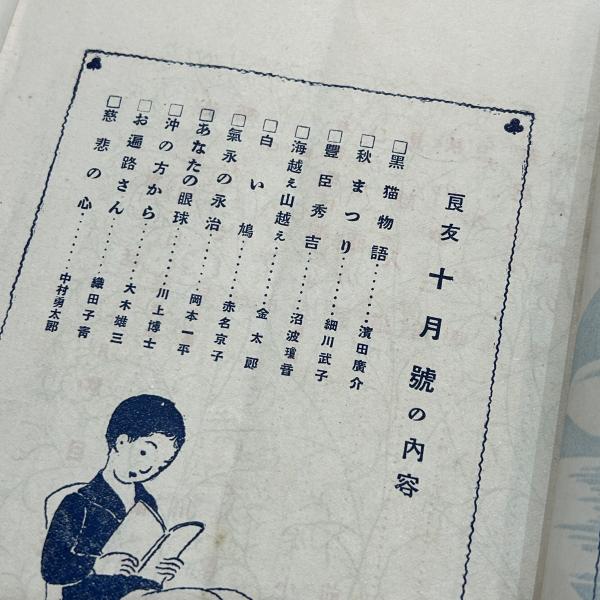 良友 十月號の內容
□黑猫物語……濱田廣介
□秋まつり……細川武子
□豐臣秀吉……沼波瓊音
□海越え山越え……金太郎
□白い鳩……赤名京子
□氣永の永治……岡本一平
□あなたの眼球……川上博士
□沖の方から……大木雄三
□お遍路さん……織田子靑
□慈悲の心……中村勇太郎